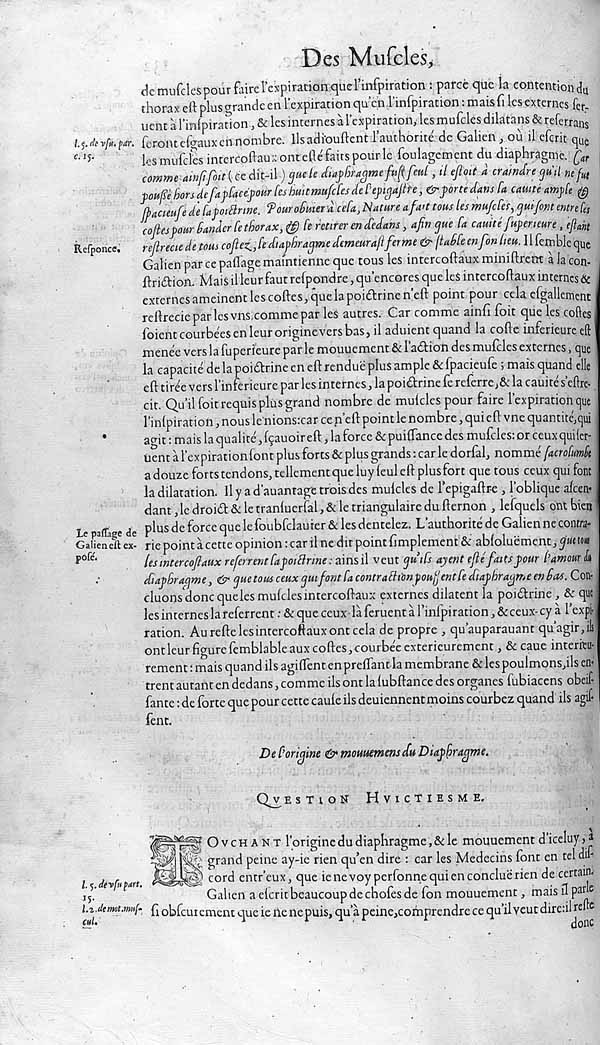 Des Muſcles,
de muſcles pour faire l'expiration que l'inſpiration : parce que la contention du
thorax eſt plus grande en l'expiration qu'en l'inſpiration : mais ſi les externes ſer-
uent à l'inſpiration, & les internes à l'expiration, les muſcles dilatans & reſerrans
l. 5. de vſu. par. c. 15.
ſeront eſgaux en nombre. Ils adiouſtent l'authorité de Galien, où il eſcrit que
les muſcles intercoſtaux ont eſté faits pour le ſoulagement du diaphragme. Car
comme ainſi ſoit (ce dit-il) que le diaphragme fuſt ſeul, il eſtoit à craindre qu'il ne fut
pouſſé hors de ſa place pour les huit muſcles de l'epigaſtre, & porté dans la cauité ample &
ſpacieuſe de la poictrine. Pour obuier à cela, Nature a fait tous les muſcles, qui ſont entre les
coſtes pour bander le thorax, & le retirer en dedans, afin que la cauité ſuperieure, eſtant
Reſponce.
reſtrecie de tous coſtez, le diaphragme demeuraſt ferme & ſtable en ſon lieu. Il ſemble que
Galien par ce paſſage maintienne que tous les intercoſtaux miniſtrent à la con-
ſtriction. Mais il leur faut reſpondre, qu'encores que les intercoſtaux internes &
externes ameinent les coſtes, que la poictrine n'eſt point pour cela eſgallement
reſtrecie par les vns comme par les autres. Car comme ainſi ſoit que les coſtes
ſoient courbées en leur origine vers bas, il aduient quand la coſte inferieure eſt
menée vers la ſuperieure par le mouuement & l'action des muſcles externes, que
la capacité de la poictrine en eſt renduë plus ample & ſpacieuſe ; mais quand elle
eſt tirée vers l'inferieure par les internes, la poictrine ſe reſerre, & la cauité s'eſtre-
cit. Qu'il ſoit requis plus grand nombre de muſcles pour faire l'expiration que
l'inſpiration, nous le nions: car ce n'eſt point le nombre, qui eſt vne quantité, qui
agit : mais la qualité, ſçauoir eſt, la force & puiſſance des muſcles: or ceux qui ſer-
uent à l'expiration ſont plus forts & plus grands : car le dorſal, nommé ſacrolumbe
a douze forts tendons, tellement que luy ſeul eſt plus fort que tous ceux qui font
la dilatation. Il y a d'auantage trois des muſcles de l'epigaſtre, l'oblique aſcen-
dant, le droict & le tranſuerſal, & le triangulaire du ſternon, leſquels ont bien
Le paſſage de Galien eſt expoſé.
plus de force que le ſoubſclauier & les dentelez. L'authorité de Galien ne contra-
rie point à cette opinion : car il ne dit point ſimplement & abſoluëment, que tous
les intercoſtaux reſerrent la poictrine: ains il veut qu'ils ayent eſté faits pour l'amour du
diaphragme, & que tous ceux qui font la contraction pouſſent le diaphragme en bas. Con-
cluons donc que les muſcles intercoſtaux externes dilatent la poictrine, & que
les internes la reſerrent : & que ceux-là ſeruent à l'inſpiration, & ceux-cy à l'expi-
ration. Au reſte les intercoſtaux ont cela de propre, qu'auparauant qu'agir, ils
ont leur figure ſemblable aux coſtes, courbée exterieurement, & caue interieu-
rement : mais quand ils agiſſent en preſſant la membrane & les poulmons, ils en-
trent autant en dedans, comme ils ont la ſubſtance des organes ſubiacens obeïſ-
ſante : de ſorte que pour cette cauſe ils deuiennent moins courbez quand ils agiſ-
ſent.
De l'origine & mouuemens du Diaphragme.
QVESTION HVICTIESME.
TOVCHANT l'origine du diaphragme, & le mouuement d'iceluy, à
grand peine ay-ie rien qu'en dire : car les Medecins ſont en tel diſ-
cord entr'eux, que ie ne voy perſonne qui en concluë rien de certain.
l. 5. de vſu part. 15.
Galien a eſcrit beaucoup de choſes de ſon mouuement, mais il parle
l. 2. de mot. muſ-cul.
ſi obſcurement que ie ne ne puis, qu'à peine, comprendre ce qu'il veut dire: il reſte
donc